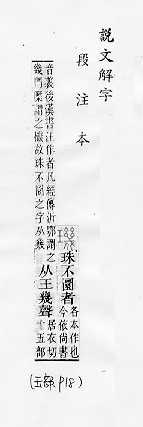 説文解字
段注本
璣
珠不圜者
各本作也
今依尚書
音義後漢書注作者凡經傳沂鄂謂之
幾門橜謂之機故珠不圜之字从幾
从王幾聲
居衣切
十五部
(玉部 P18)